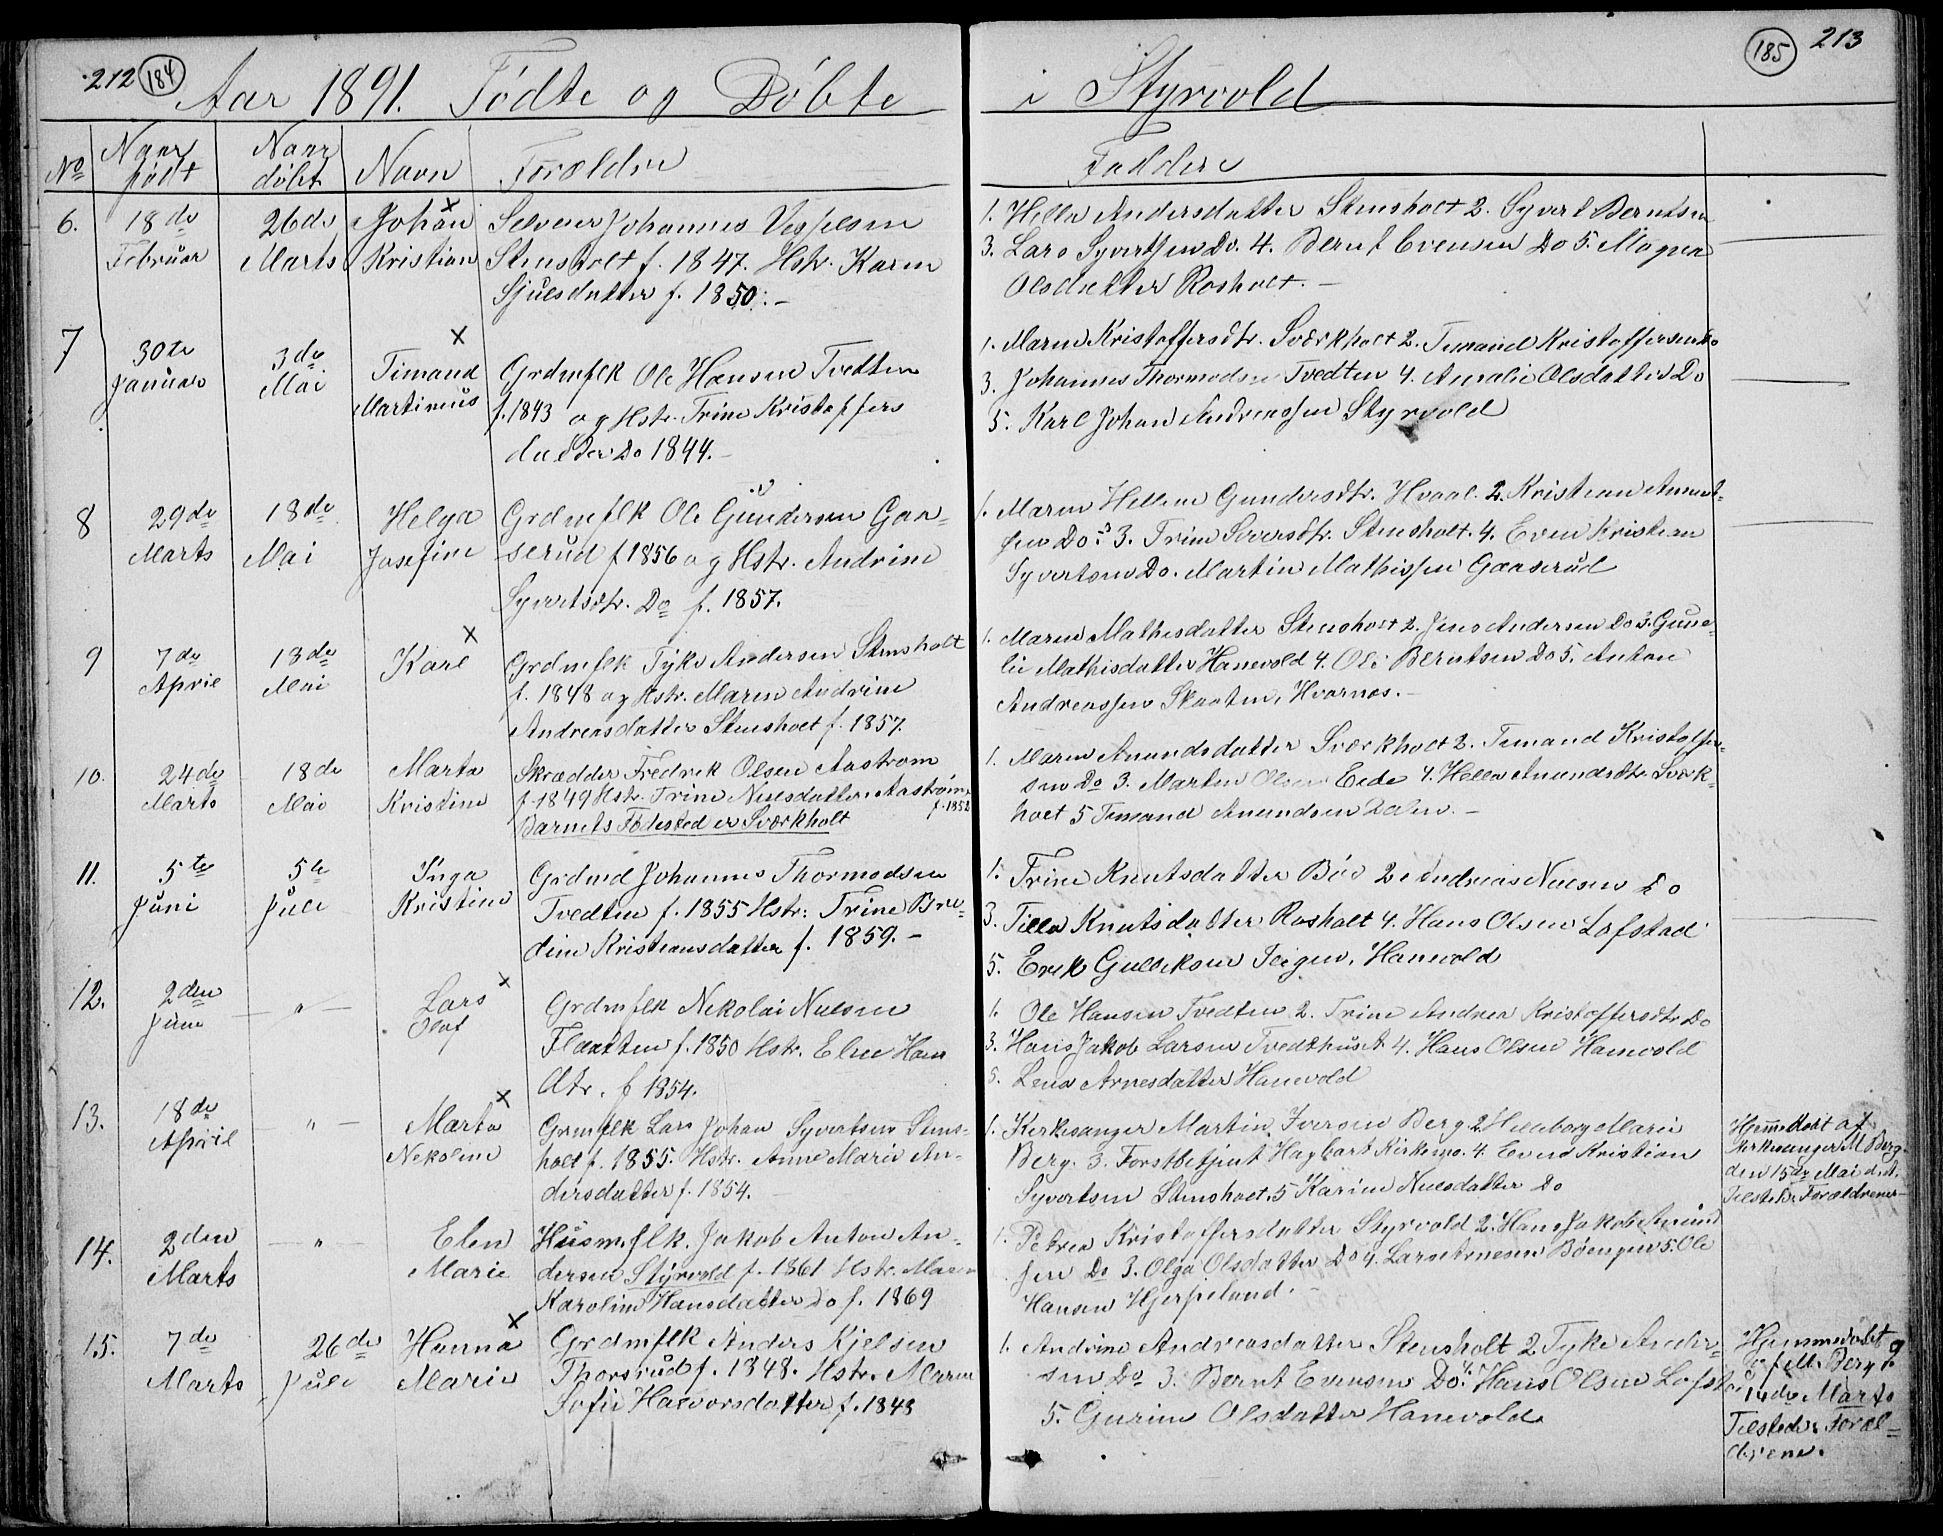 212 (184) Aar 1891. Födte og Döbte
i Styrvold (185) 213
No Naar födt Naar döbt Navn Forældre
Faddere
6. 18de 26de Johan Selveier Johannes
Februar Marts Kristian Stensholt f. 1847. Hstr. Karen
Sjulsdatter f. 1850. -
1. Hella Andersdatter Stensholt 2. Syvert Berntsen
3. Lars Syvertsen Do. 4. Bernt Evensen Do 5. Magna
Olsdatter Rosholt. -
7 30te 3de Timand Grdmflk Ole Hansen Tvedten
Januar Mai Martinius f. 1843 og Hstr. Trine Kristoffers
datter Do 1844. -
1. Maren Kristoffersdtr. Sværkholt 2. Timand Kristoffersen Do
3. Johannes Thormodsen Tvedten 4. Amalie Olsdatter Do
5. Karl Johan Andreassen Styrvold
8 29de 18de Helga Grdmflk Ole Gundersen Gaa-
Marts Mai Josefine serud f 1856 og Hstr. Andrine
Syvertsdtr. Do f. 1857.
1. Maren Hellene Gundersdtr. Hvaal. 2. Kristian
sen Do. 3. Trine Sversdtr. Stensholt. 4. Even Kristian
Syvertsen Do. Martin Mathissen Gaaserud
9 7de 18de Karl Grdmflk Tyke Andersen Stensholt
April Mai f. 1848 og Hstr. Maren Andrine
Andreasdatter Stensholt f. 1857.
1. Maren Mathisdatter Stensholt 2. Jens Andersen Do 3. Gune-
lie Mathisdatter Hanevold 4. Ole Berntsen Do 5. Anton
Andreassen Skaaten, Hvarnes. -
10. 24de 18de Marta Skrædder Fredrik Olsen Aastrøm
Marts Mai Kristine f. 1849 Hstr. Trine Nielsdatter Aastrøm
f. 1852
Barnets Fødested er Sværkholt
1. Maren Amundsdatter Sværkholt 2. Timand Kristoffer-
sen Do 3. Martin Olsen Eide 4. Hella Amundsdtr. Sværk-
holt 5 Timand Amundsen Dalen. -
11. 5te 5te Inga Grdmd Johannes Thormodsen
Juni Juli Kristine Tvedten f. 1855 Hstr: Trine Bre-
dine Kristiansdatter f. 1859. -
1. Trine Knutsdatter Böe 2. Andreas Nielsen Do
3. Tilla Knutsdatter Rosholt 4. Hans Olsen Lofstad
5. Erik Gulliksen Teigen, Hanevold
12. 2den — " — Lars Grdmflk Nikolai Nielsen
Juni Olaf Flaatten f. 1850 Hstr. Elen Hans
dtr. f 1854.
1. Ole Hansen Tvedten 2. Trine Andrea Kristoffersdtr Do
3. Hans Jakob Larsen Tvedthuset 4. Hans Olsen Hanevold
5. Lena Arnesdatter Hanevold
13. 18de — " — Marta Grmflk Lars Johan Syvertsen Stens-
April Nikoline holt f. 1855. Hstr. Anne Marie An-
dersdatter f. 1854.
1. Kirkesanger Martin Iversen Berg 2 Hilleborg Marie
Berg. 3. Forstbetjent Hagbart Kirkemo. 4. Even Kristian
Syvertsen Stensholt. 5 Karine Nielsdatter Do
Hjemmedöbt af
Kirkesanger M Berg
den 15de Mai d. A.
Tilstede Forældrene -
14. 2den — " — Elen Husm.flk. Jakob Anton An-
Marts Marie dersen Styrvold f. 1861 Hstr. Maren
Karoline Hansdatter Do f. 1869
1. Petrea Kristoffersdatter Styrvold 2. Hans Jakob Amund
sen Do 3. Olga Olsdatter Do 4. Lars Arnesen Böengen 5. Ole
Hansen Hjerpelund. -
15. 7de 26de Hanna Grdmflk Anders Kjelsen
Marts Juli Marie Thorsrud f. 1848. Hstr. Maren
Sofie Halvorsdatter f. 1848
1. Andrine Andreasdatter Stensholt 2. Tyke Ander-
sen Do 3. Bernt Evensen Do. 4. Hans Olsen Lofstad
5. Gurine Olsdatter Hanevold
Hjemmedöbt
af M. Berg
Marts
Tilstede: Foræl-
drene.